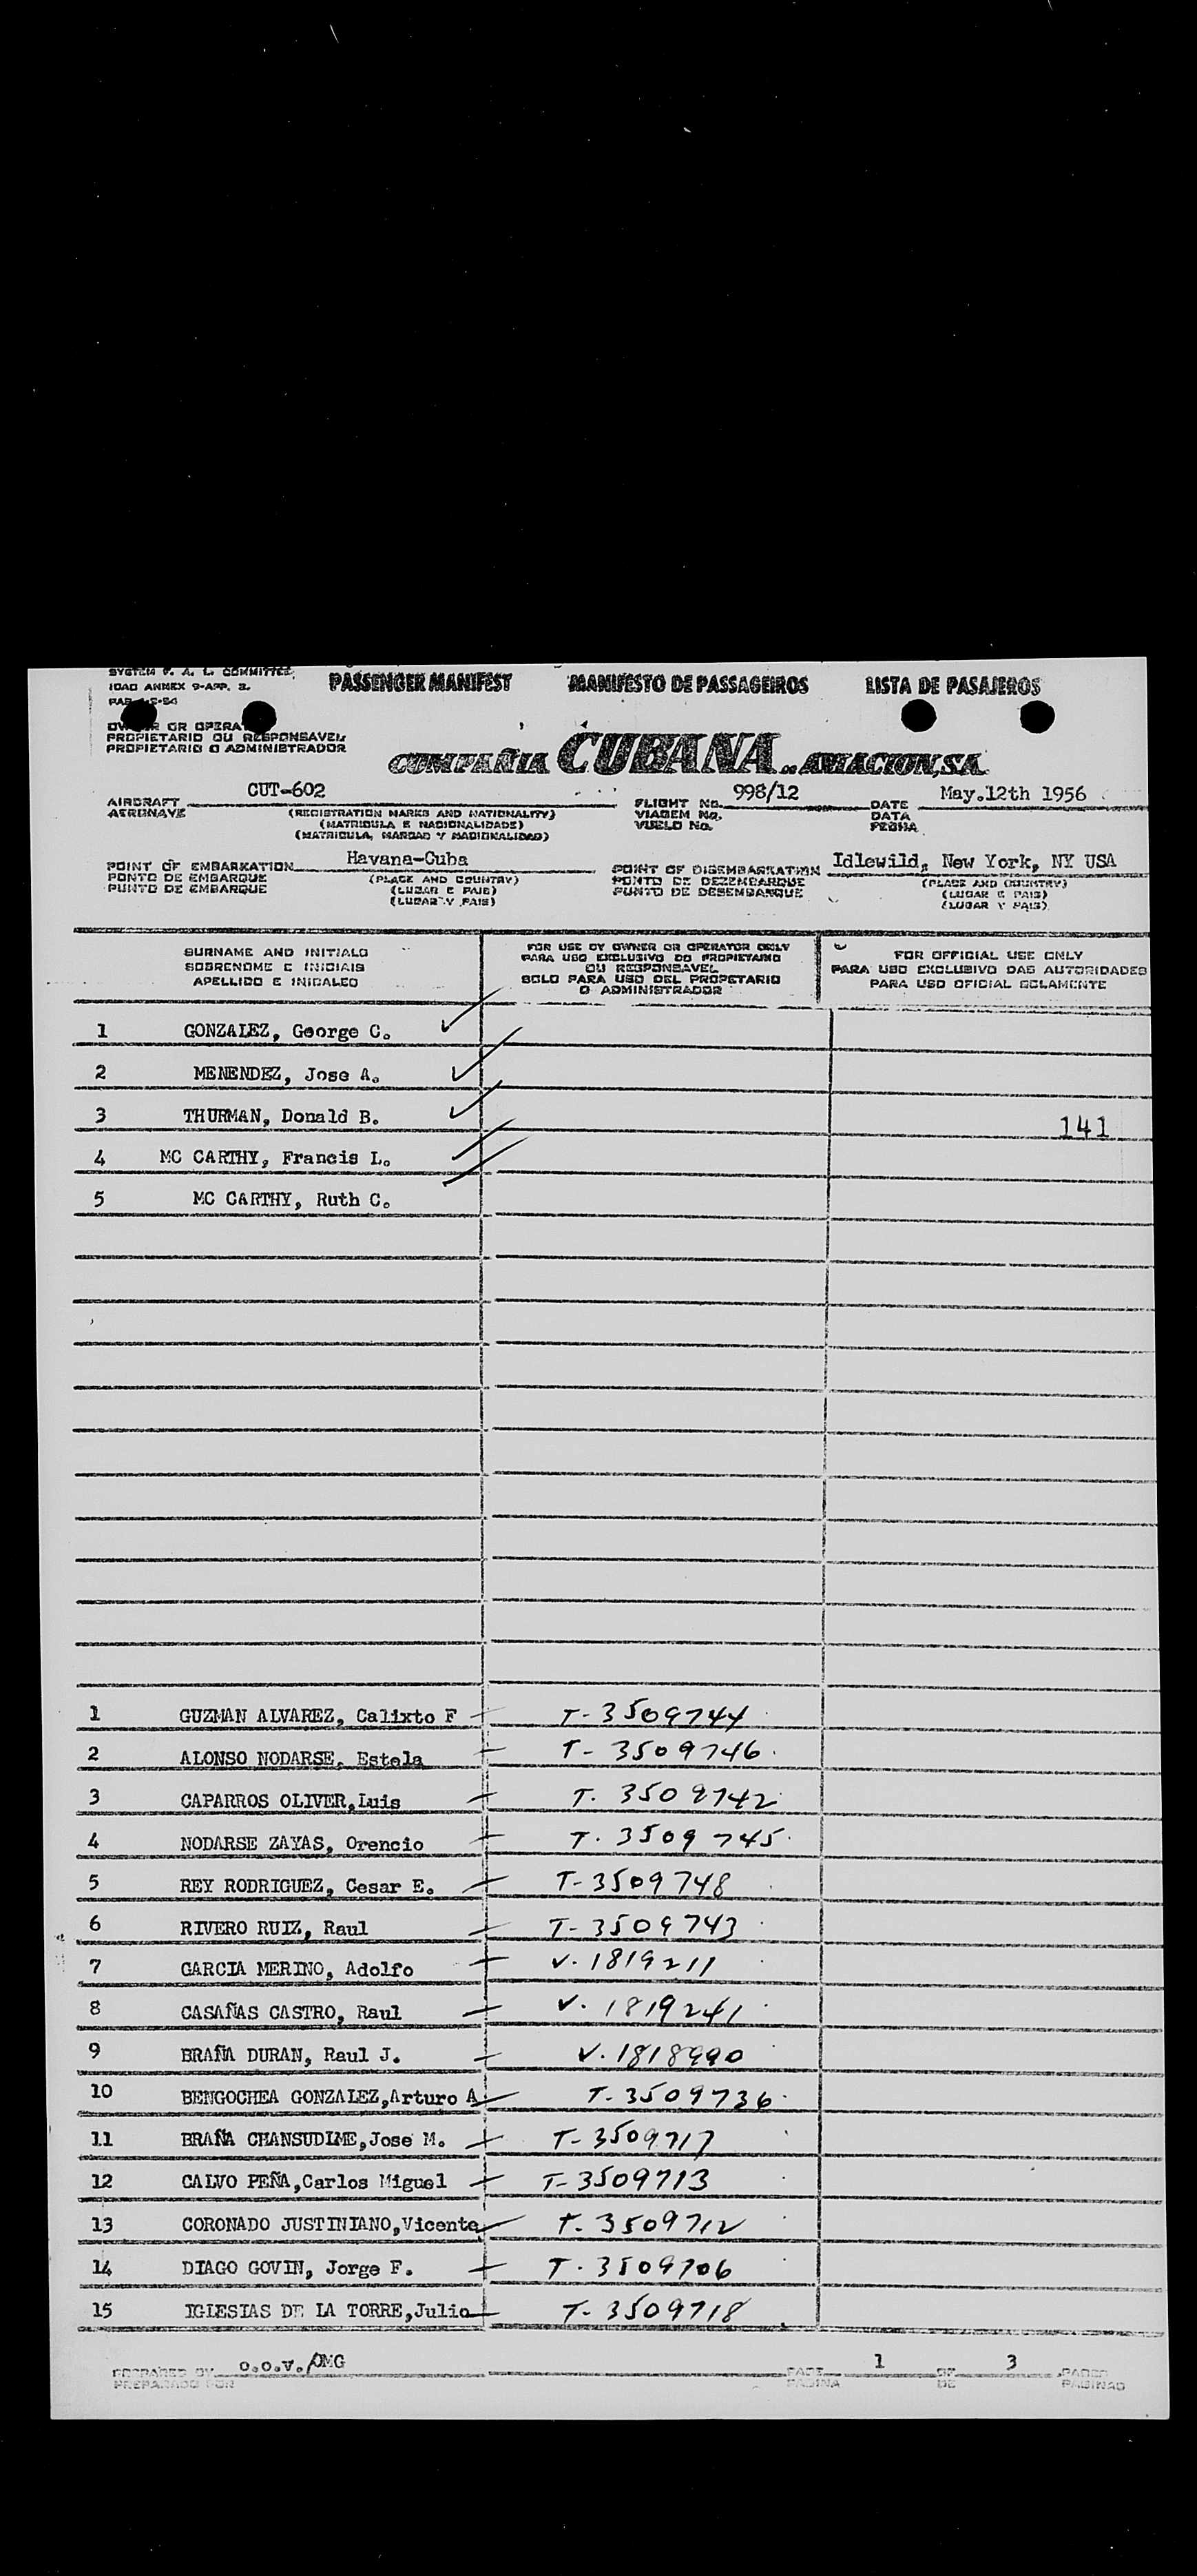 SYSTEM F. A. L. COMMITTEE
ICAO ANNEX 9-APP. 3.
PASSENGER MANIFEST MANIFESTO DE PASSAGEIROS LISTA DE PASAJEROS
OWNER OR OPERATOR
PROPIETARIO OU RESPONSAVEL
PROPIETARIO O ADMINISTRADOR
COMPAÑIA CUBANA DE AVIACION, S.A.
AIRCRAFT CUT-602 FLIGHT No. 998/12 DATE May.12th 1956
AERONAVE (REGISTRATION MARKS AND NATIONALITY) VIAGEM No. DATA
(MATRICULA E NACIONALIDADE) VUELO No. FECHA
(MATRICULA, MARCAS Y NACIONALIDAD)
POINT OF EMBARKATION Havana-Cuba POINT OF DISEMBARKATION Idlewild, New York, NY USA
PONTO DE EMBARQUE (PLACE AND COUNTRY) PONTO DE DEZEMBARQUE (PLACE AND COUNTRY)
PUNTO DE EMBARQUE (LUGAR E PAIS) PUNTO DE DESEMBARQUE (LUGAR E PAIS)
(LUGAR Y PAIS) (LUGAR Y PAIS)
SURNAME AND INITIALS
SOBRENOME E INICIAIS
APELLIDO E INICALES
FOR USE BY OWNER OR OPERATOR ONLY
PARA USO EXCLUSIVO DO PROPIETARIO
OU RESPONSAVEL
SOLO PARA USO DEL PROPETARIO
O ADMINISTRADOR
FOR OFFICIAL USE ONLY
PARA USO EXCLUSIVO DAS AUTORIDADES
PARA USO OFICIAL SOLAMENTE
1 GONZALEZ, George C.
2 MENENDEZ, Jose A.
3 THURMAN, Donald B. 141
4 MC CARTHY, Francis L.
5 MC CARTHY, Ruth C.
1 GUZMAN ALVAREZ, Calixto F T-3509744
2 ALONSO NODARSE, Estela T-3509746
3 CAPARROS OLIVER,Luis T. 3509742
4 NODARSE ZAYAS, Orencio T. 3509745
5 REY RODRIGUEZ, Cesar E. T-3509748
6 RIVERO RUIZ, Raul T-3509743
7 GARCIA MERINO, Adolfo V. 1819211
8 CASAÑAS CASTRO, Raul V. 1819241
9 BRAÑA DURAN, Raul J. V. 1818990
10 BENGOCHEA GONZALEZ,Arturo A T-3509736
11 BRAÑA CHANSUDIME,Jose M. T-3509717
12 CALVO PEÑA,Carlos Miguel T-3509713
13 CORONADO JUSTINIANO,Vicente T-3509712
14 DIAGO GOVIN, Jorge F. T-3509706
15 IGLESIAS DE LA TORRE,Julio T-3509718
PREPARED BY o.o.v./OMG PAGE 1 OF 3 PAGES
PREPARADO POR PAGINA DE PAGINAS